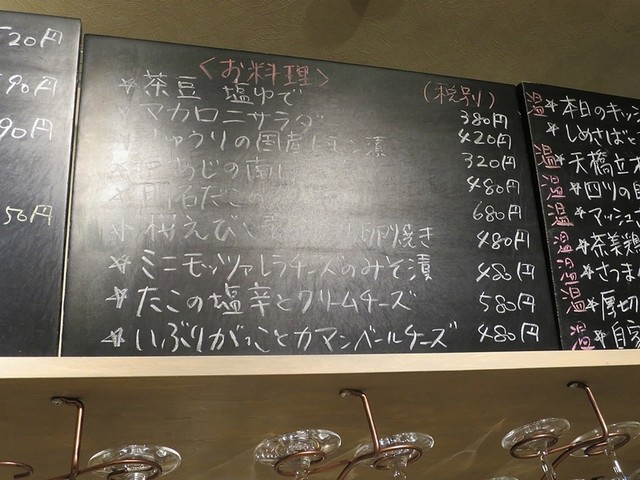 20円
90円
90円
50円
〈お料理〉 (税別)
☆茶豆 塩ゆで 380円
☆マカロニサラダ 420円
きゅうりの国産レモン漬 320円
の南 480円
明石だこの 680円
桜えび 卵焼き 480円
☆ミニモッツァレラチーズのみそ漬 480円
☆たこの塩辛とクリームチーズ 580円
☆いぶりがっことカマンベールチーズ 480円
温☆本日のキッシ
☆しめさば
温☆天橋立
温☆四りの
温☆マッシュ
温☆茶美鶏
温☆さつま
温☆厚切
温☆自家